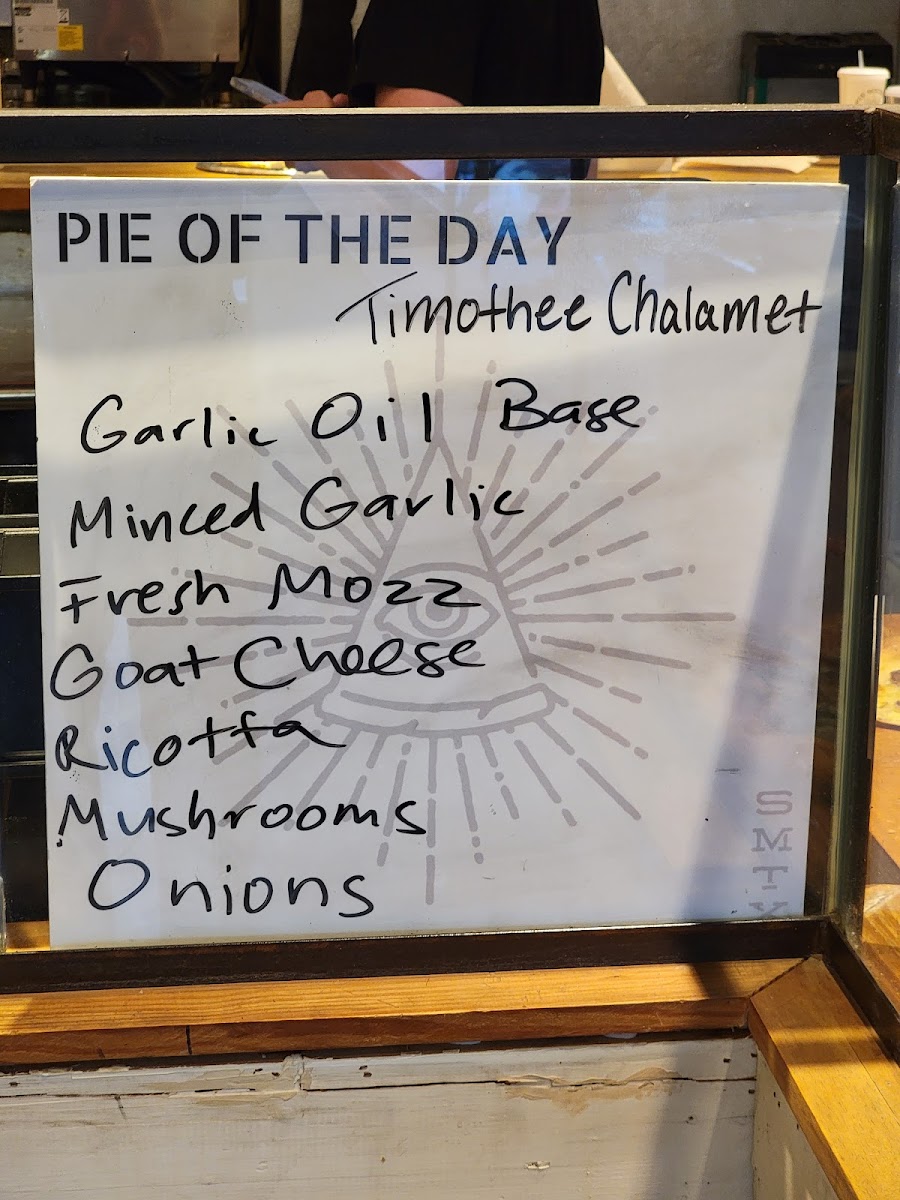 PIE OF THE DAY
Timothee Chalamet
Garlic Oil Base
Minced Garlic
Fresh Mozz
Goat Cheese
Ricotta
Mushrooms
Onions
S
M
T
X